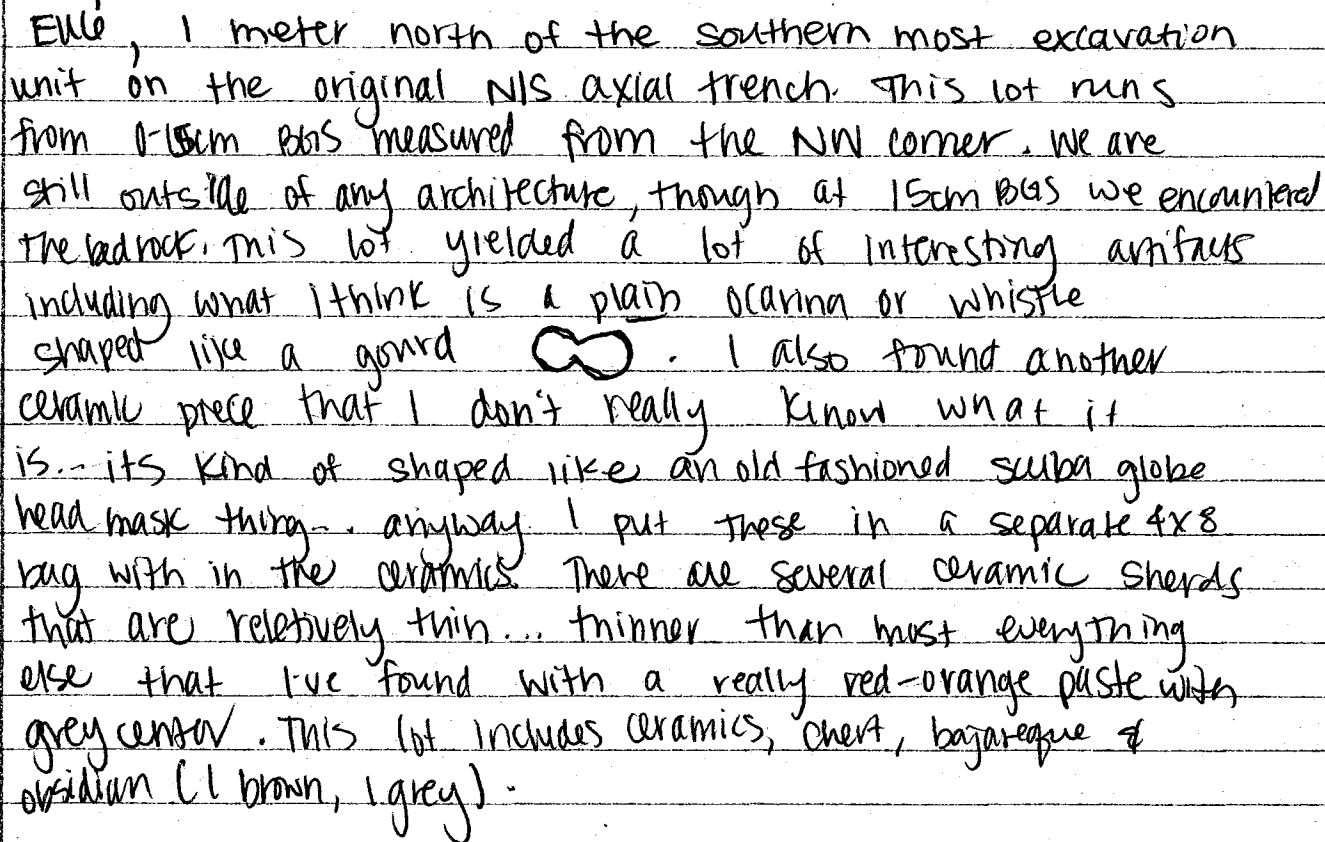 , 1 meter north of the southern most excavation
unit on the original N/S axial trench. This lot runs
from 0-15cm BGS measured from the NW corner. We are
still outside of any architecture, though at 15cm BGS we encountered
the bedrock. This lot yielded a lot of interesting artifacts
including what I think is a plain ocarina or whistle
shaped like a gourd . I also found another
ceramic piece that I don't really know what it
is... its kind of shaped like an old fashioned scuba globe
head mask thing... anyway I put these in a separate 4x8
bag with in the ceramics. There are several ceramic sherds
that are reletively thin... thinner than most everything
else that I've found with a really red-orange paste with
grey center. This lot includes ceramics, chert, bajareque &
obsidian (1 brown, 1 grey).